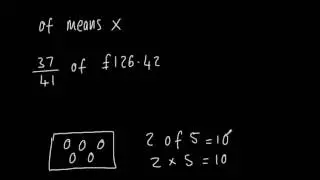 of means x
37/41 of £126.42
2 of 5 = 10
2 x 5 = 10